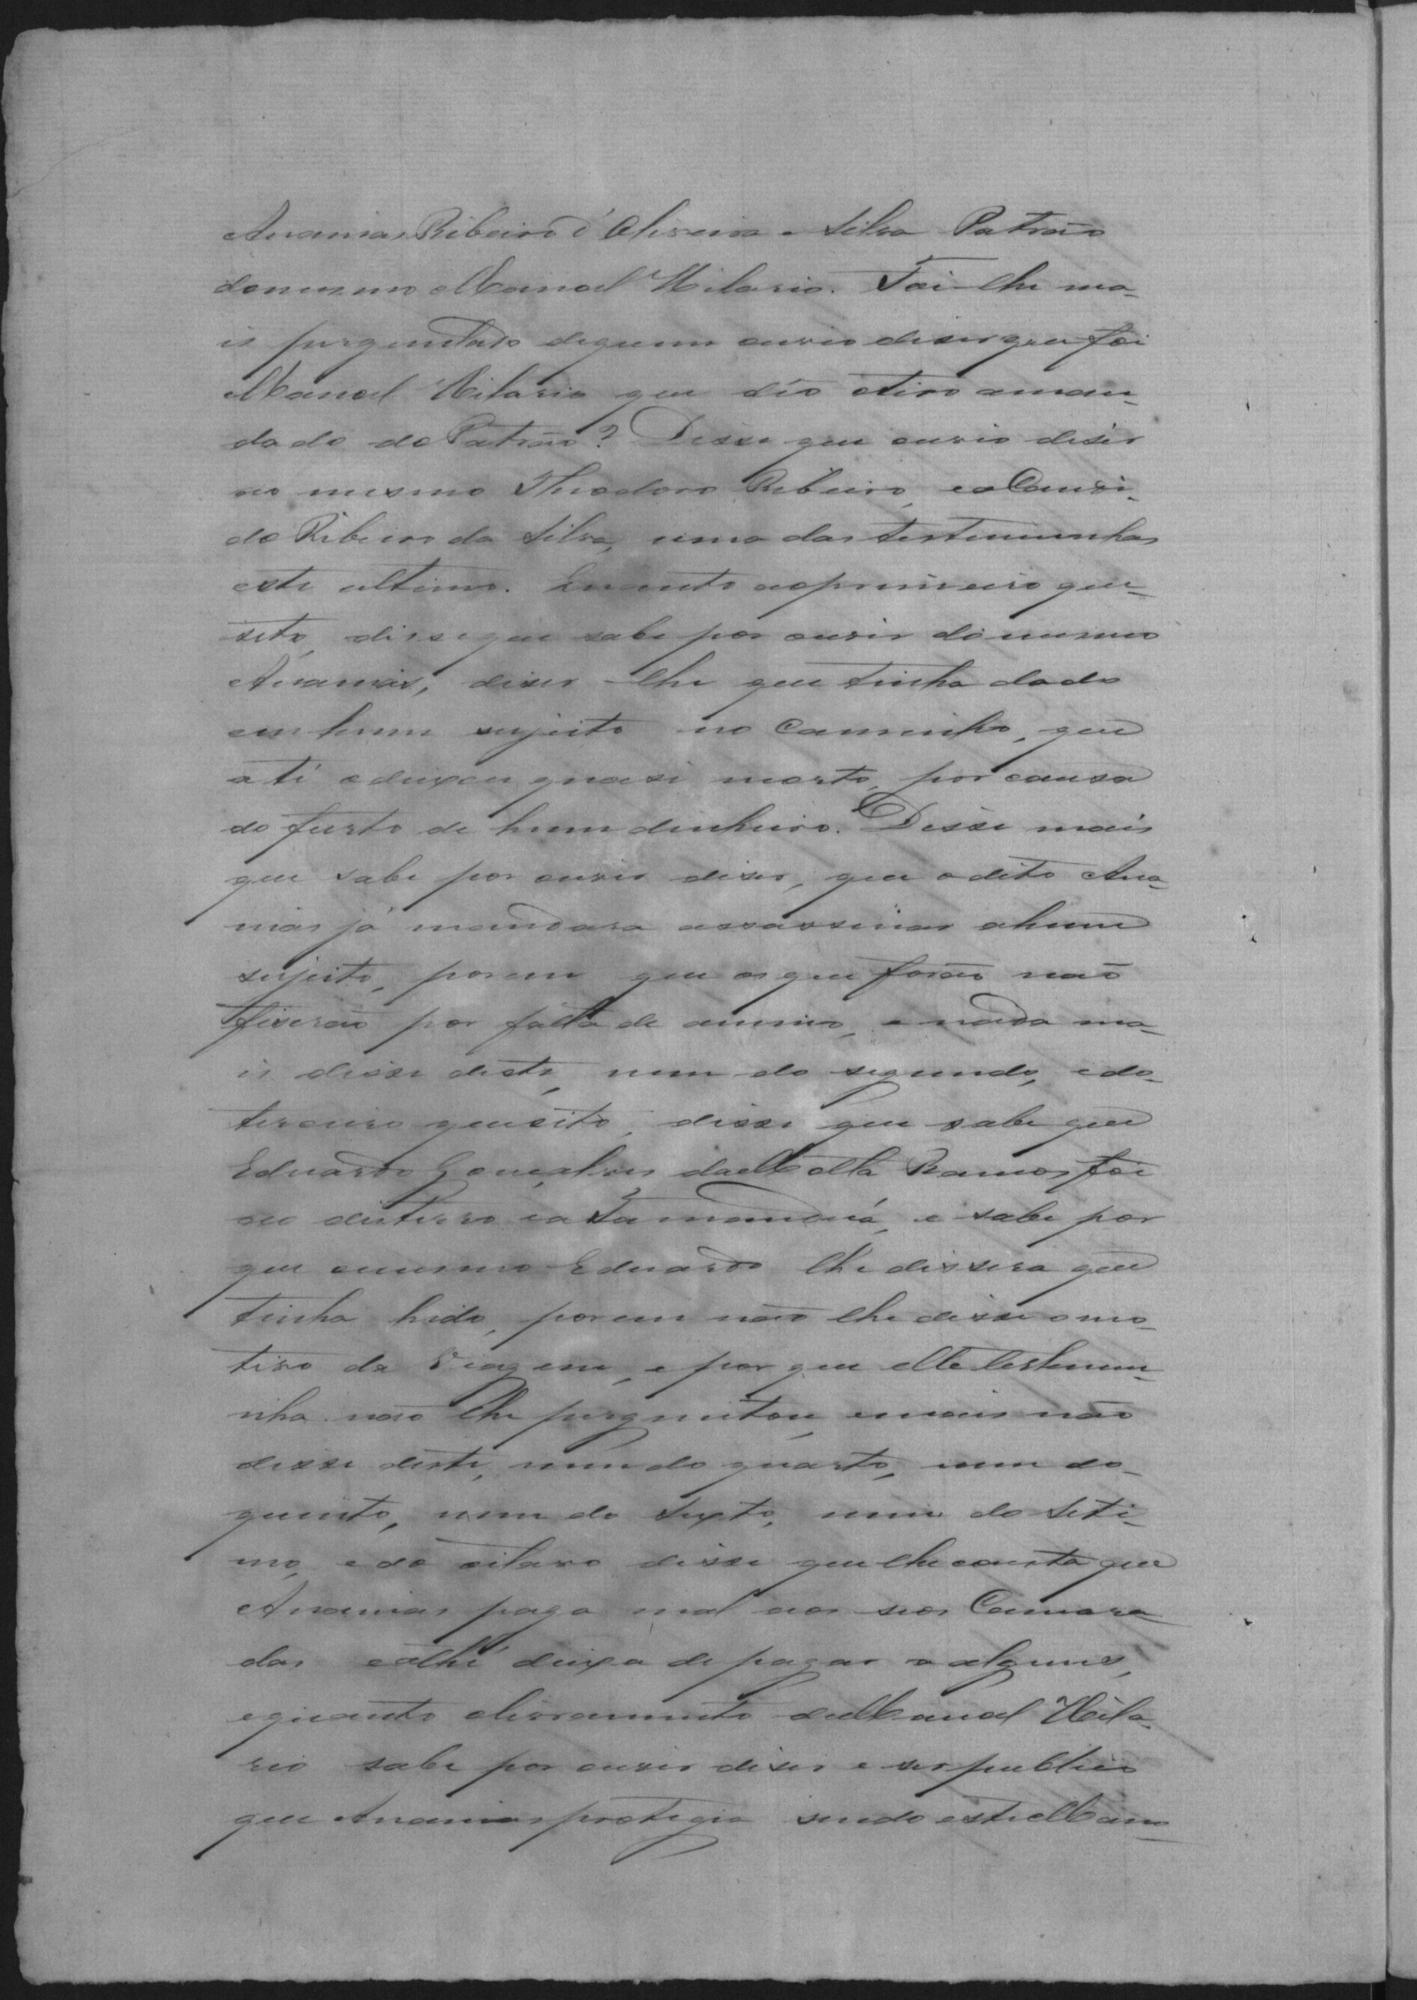 Ananias Ribeiro d'Oliveira e Silva Patrão
domesmo Manoel Hilario. Foi-lhe ma-
is perguntado dequem ouvio diser que foi
Manoel Hilario que dêo otiro aman-
dado do Patrão? Disse que ouvio diser
no mesmo Theodoro Ribeiro, e a Candi-
do Ribeiro da Silva, uma das testemunhas
este ultimo. Quanto aoprimeiro que-
sito, disse que sabe por ouvir do mesmo
Ananias, diser-lhe que tinha dado
em hum sujeito no Caminho, que
até odeixou quasi morto, por causa
do furto de hum dinheiro. Disse mais
que sabe por ouvir diser, que o dito Ana-
nias já mandara assassinar ahum
sujeito, porem que os que forão não
fiserão por falta de animo, e nada ma-
is disse deste, nem do segundo, e do
terceiro quesito, disse que sabe que
Eduardo Gonçalves da Motta Ramos foi
ao desterro e a Tamanduá, e sabe por
que omesmo Eduardo lhe dissera que
tinha hido, porem não lhe disse o mo-
tivo da Viagem, e por que elle testemu-
nha não lhe perguntou, emais não
disse deste, nem do quarto, nem do
quinto, nem do Sexto, nem do Seti-
mo, e do oitavo disse que lhe consta que
Ananias paga mal aos seos Camara
das e athé deixa de pagar a alguns,
equanto olivramento de Manoel Hila-
rio sabe por ouvir diser e ser publico
que Ananias protegia sendo este Mano